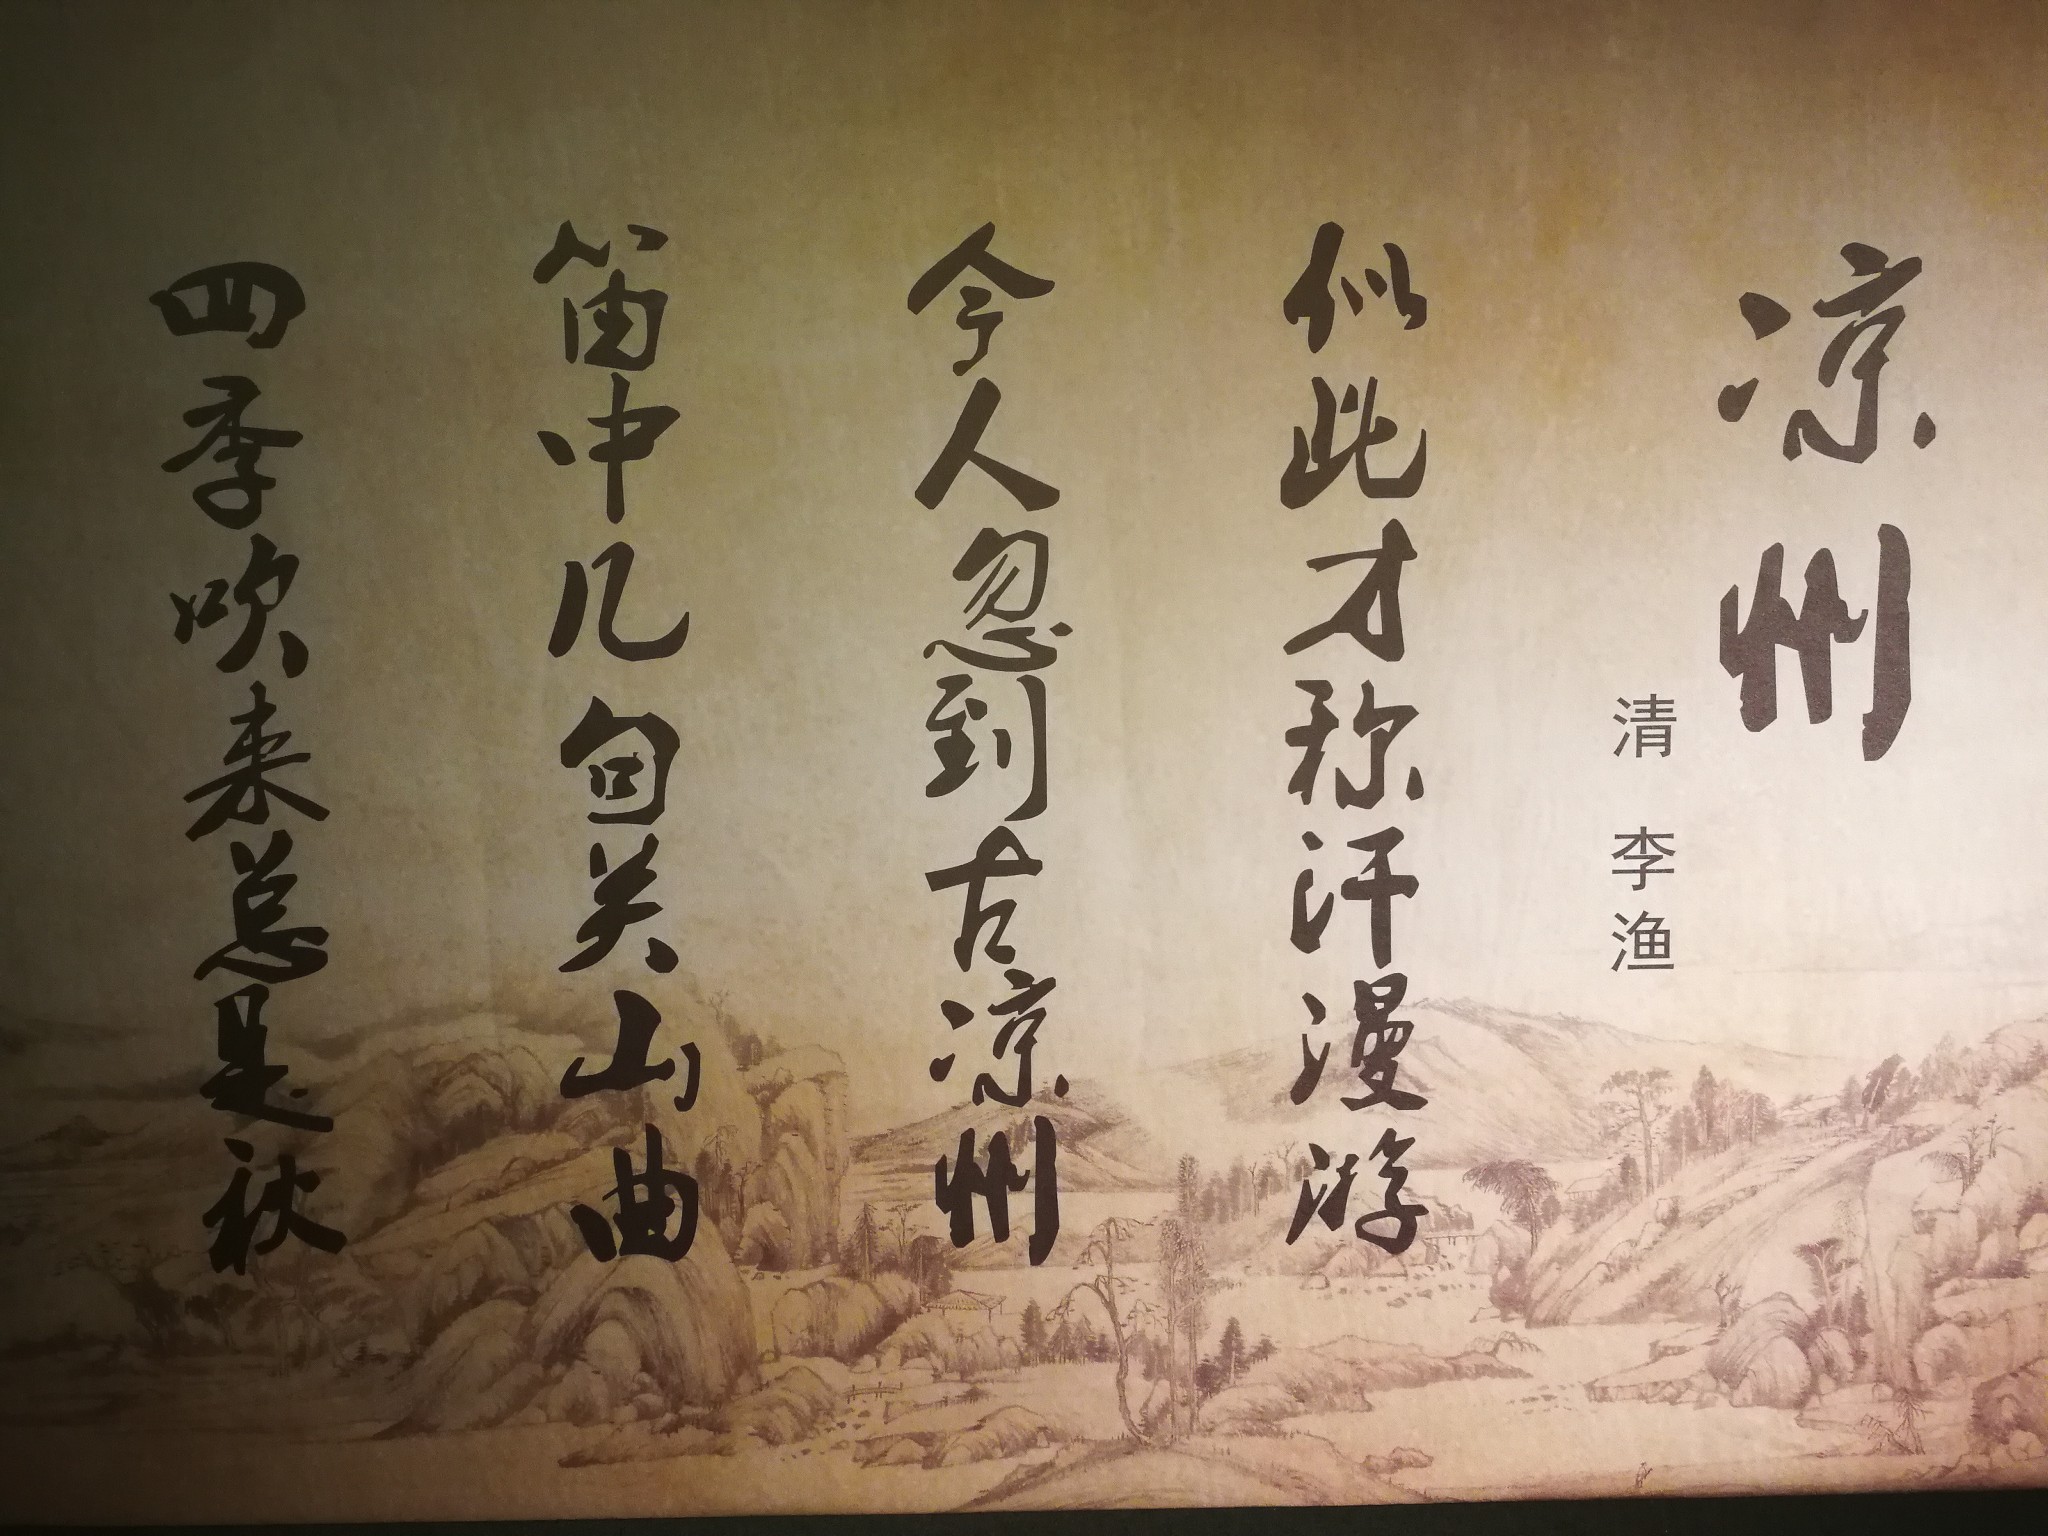 凉州
清 李渔
似此才称汗漫游
今人忽到古凉州
笛中几句关山曲
四季吹来总是秋